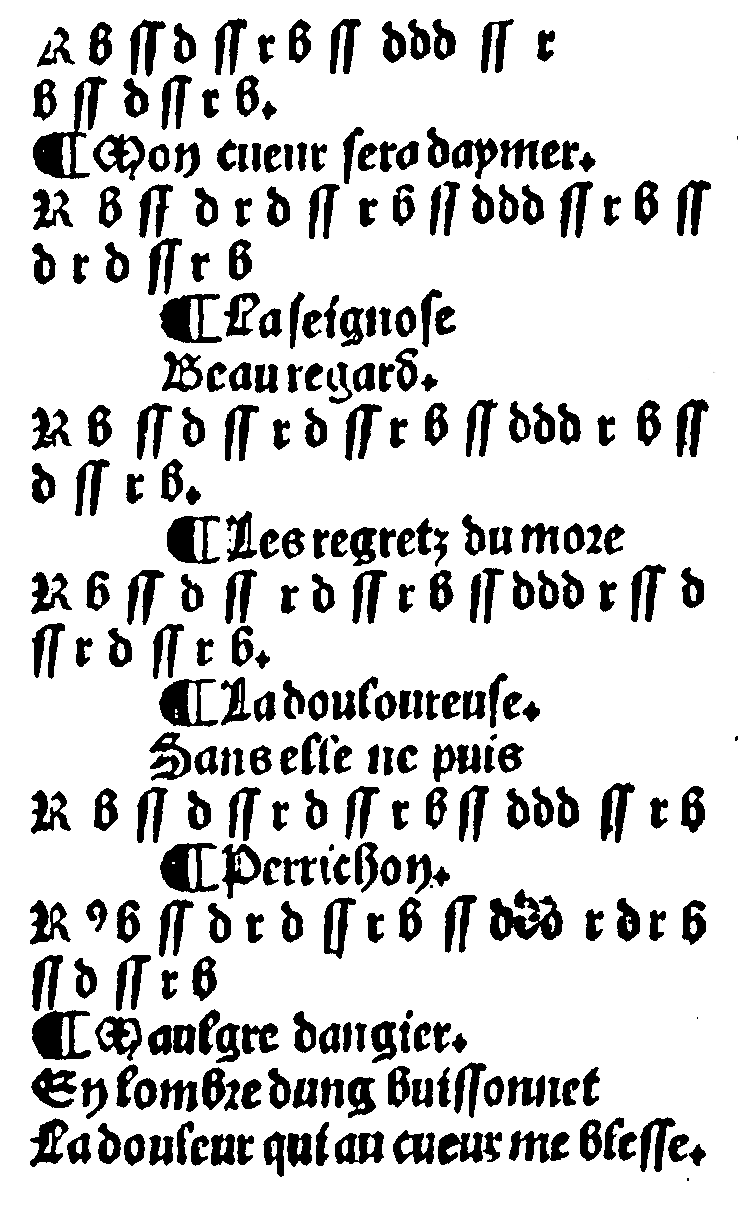 R b ſſ d ſſ r b ſſ ddd ſſ r
b ſſ d ſſ r b.
¶Mon cueur ſera daymer.
R b ſſ d r d ſſ r b ſſ ddd ſſ r b ſſ
d r d ſſ r b
¶La ſeignoſe
Beau regard.
R b ſſ d ſſ r d ſſ r b ſſ ddd r b ſſ
d ſſ r b.
¶Les regretz du more
R b ſſ d ſſ r d ſſ r b ſſ ddd r ſſ d
ſſ r d ſſ r b.
¶La douloureuſe.
Sans elle ne puis
R b ſſ d ſſ r d ſſ r b ſſ ddd ſſ r b
¶Perrichon.
R 9b ſſ d r d ſſ r b ſſ ddd r d r b
ſſ d ſſ r b
¶Maulgre dangier.
En lombre dung buiſſonnet
La douleur qui au cueur me bleſſe.